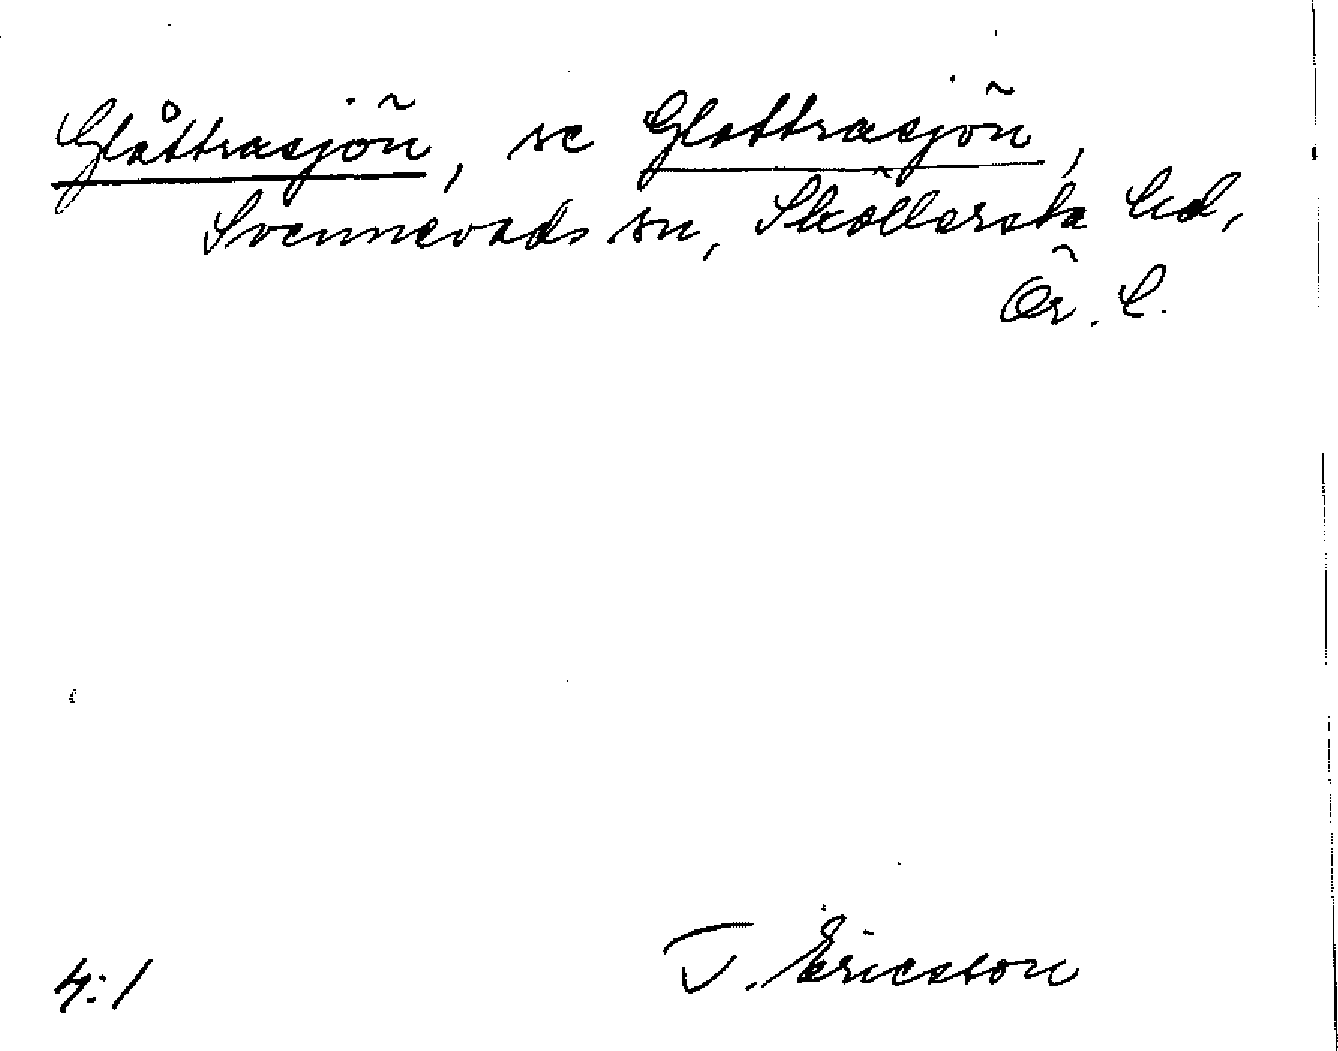 Glåttrasjön, se Glottrasjön,
Svennevads sn, Sköllersta hd,
Ör. l.
T. Ericsson
4:1